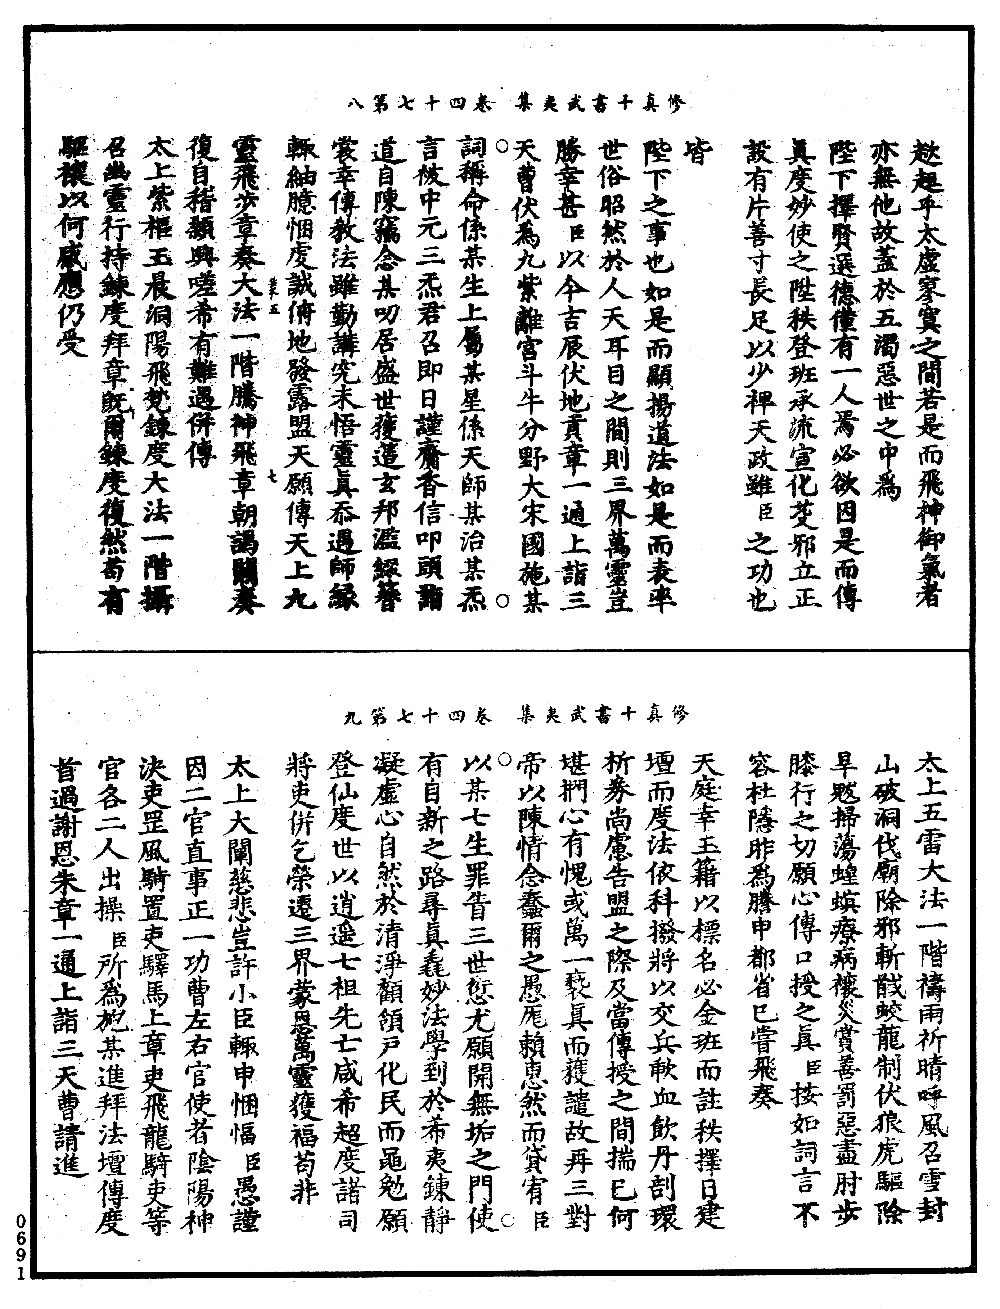 修真十書武夷集　卷四十七第八
趑趄乎太虛寥寞之間若是而飛神御氣者
亦無他故蓋於五濁惡世之中為
陛下擇賢選德僅有一人焉必欲因是而傳
真度妙使之陞秩登班承流宣化芟邪立正
設有片善寸長足以少裨天政雖臣之功也
皆
陛下之事也如是而顯揚道法如是而表率
世俗昭然於人天耳目之間則三界萬靈豈
勝幸甚臣以今吉辰伏地貢章一通上詣三
天曹伏為九紫離宮斗牛分野大宋國施某
詞稱命係某生上屬某星係天師某治某炁
言被中元三炁君召即日謹齋香信叩頭詣
道自陳竊念某叨居盛世獲遭玄邦濫綴簪
裳幸傳教法雖勤講究未悟靈真忝遇師緣
輒紬臆悃虔誠俯地發露盟天願傳天上九
靈飛步章奏大法一階騰神飛章朝謁闕奏
復自稽顙興嗟希有難遇併傳
太上紫樞玉晨洞陽飛梵鍊度大法一階攝
召幽靈行持鍊度拜章既爾鍊度復然苟有
驅禳以何感應仍受
七
修真十書武夷集　卷四十七第九
太上五雷大法一階禱雨祈晴呼風召雪封
山破洞伐廟除邪斬馘蛟龍制伏狼虎驅除
旱魃掃蕩蝗螟療病禳災賞善罰惡盡肘步
膝行之切願心傳口授之真臣按如詞言不
容杜隱昨為騰申都省已嘗飛奏
天庭幸玉籍以標名必金班而註秩擇日建
壇而度法依科撥將以交兵歃血飲丹剖環
析券尚慮告盟之際及當傳授之間揣己何
堪捫心有愧或萬一褻真而獲譴故再三對
帝以陳情念蠢爾之愚庬賴惠然而貸宥臣
以某七生罪眚三世愆尤願開無垢之門使
有自新之路尋真毳妙法學到於希夷鍊靜
凝虛心自然於清淨顧頷戶化民而黽勉願
登仙度世以逍遥七祖先亡咸希超度諸司
將吏併乞榮遷三界蒙恩萬靈獲福苟非
太上大闡慈悲豈許小臣輒申悃愊臣愚謹
因二官直事正一功曹左右官使者陰陽神
決吏罡風騎置吏驛馬上章吏飛龍騎吏等
官各二人出操臣所為施某進拜法壇傳度
首過謝恩朱章一通上詣三天曹請進
0691